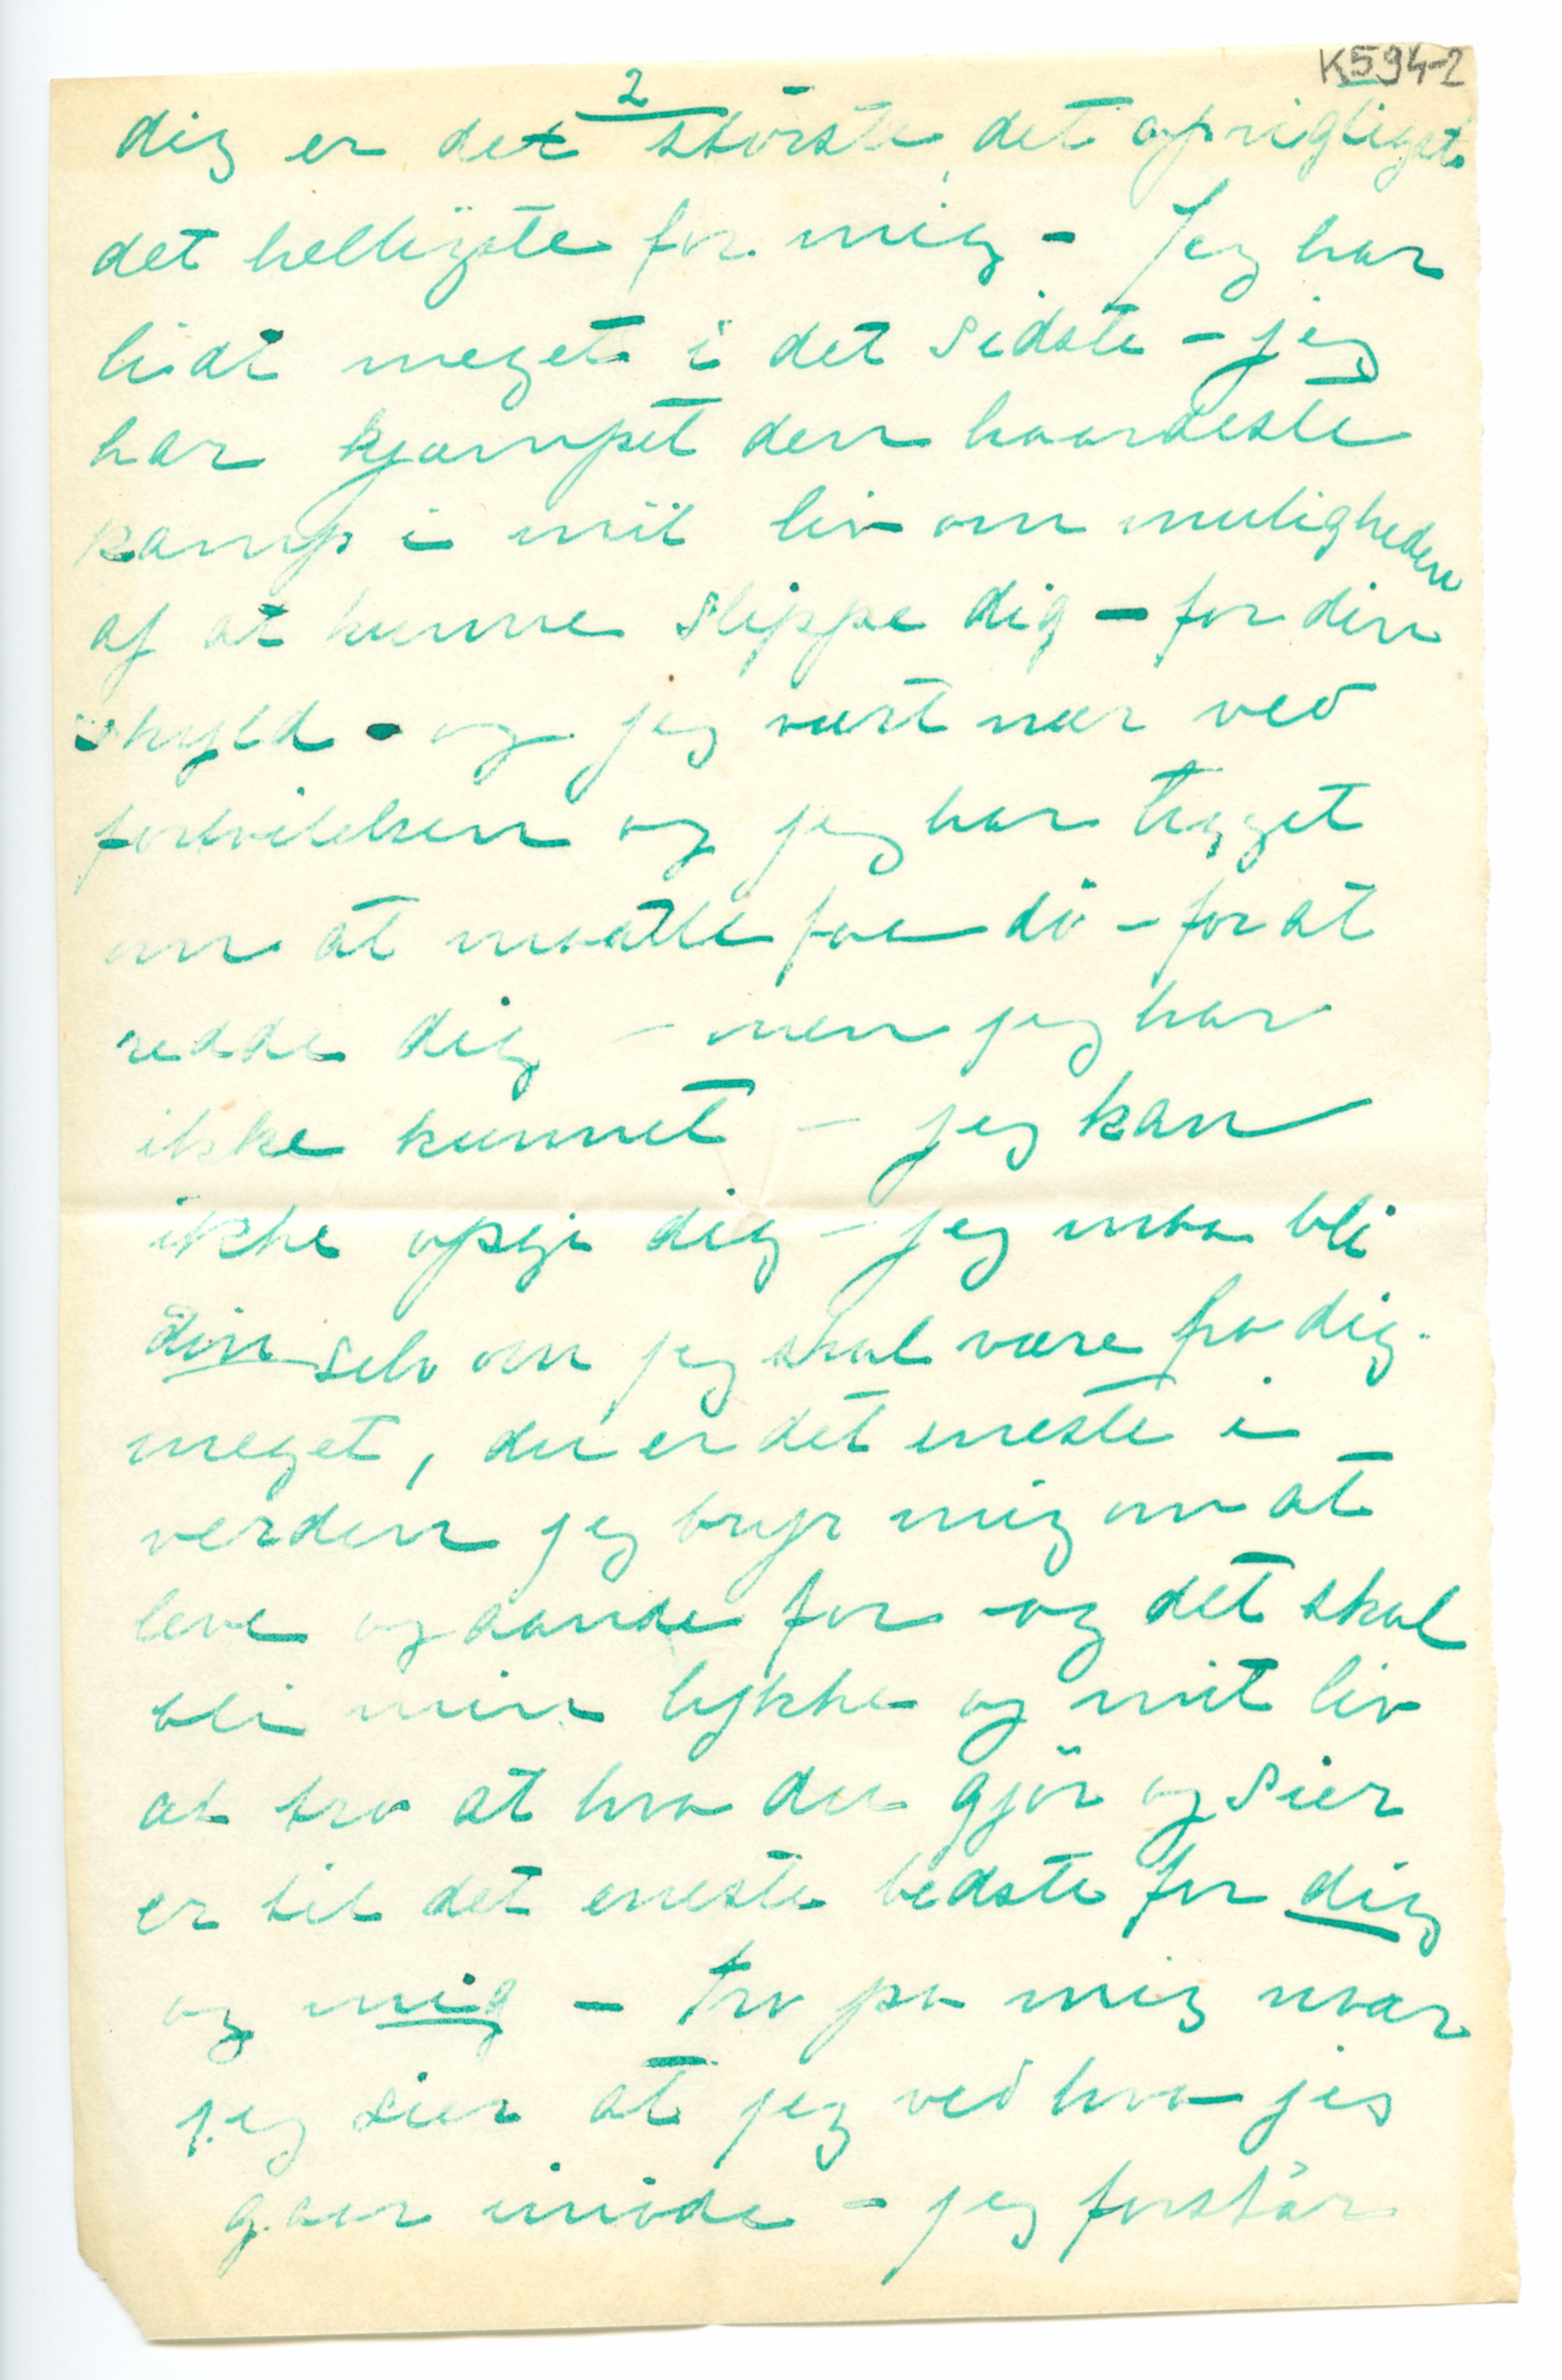 K594-2
2
dig er det störste, det oprigtigste
det helligste for mig - Jeg har
lidt meget i det sidste - jeg
har kjæmpet den haardeste
kamp i mit liv om muligheden
af at kunne slippe dig - for din
skyld - og jeg vært nær ved
fortvilelsen og jeg har tigget
om at maatte faa dö - for at
redde dig - men jeg har
ikke kunnet - jeg kan
ikke opgi dig - jeg maa bli
din selv om jeg skal være fra dig
meget, du er det eneste i
verden jeg bryr mig om at
leve og aande for - og det skal
bli min lykke og mit liv
at tro at hva du gjör og sier
er til det eneste bedste for dig
og mig - tro pa mig naar
jeg sier at jeg ved hva jeg
gaar imöde - jeg forstår